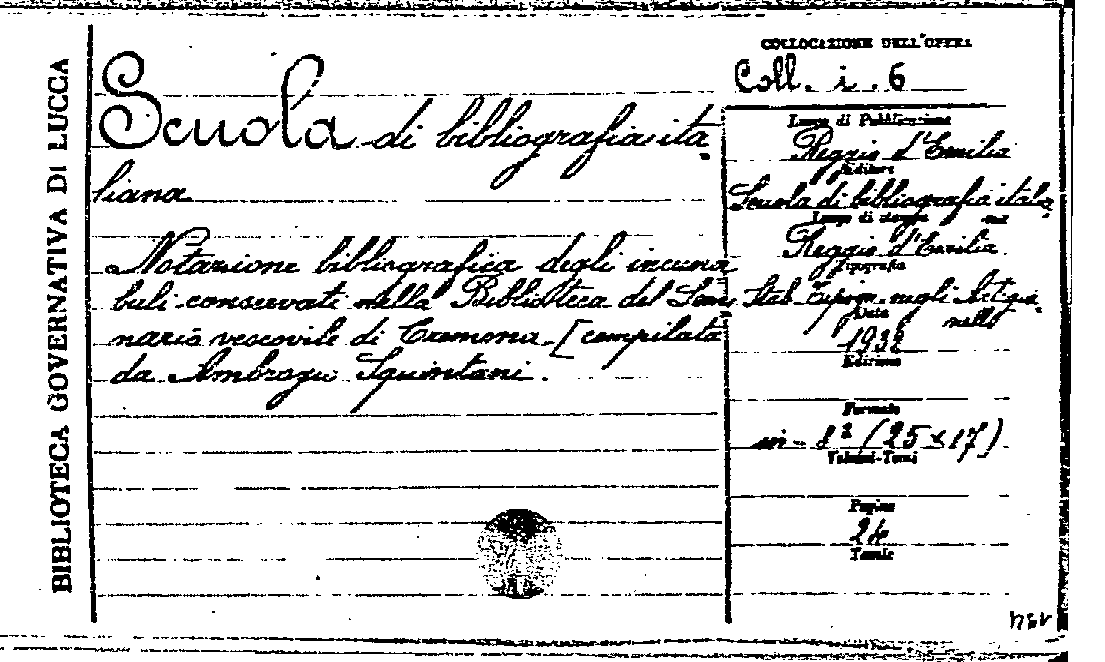 BIBLIOTECA GOVERNATIVA DI LUCCA
Scuola di bibliografia ita
liana
Notazione bibliografica degli incuna
buli conservati nella Biblioteca del Semi
nario vescovile di Cremona. [compilata
da Ambrogio Squintani.
COLLOCAZIONE DELL'OPERA
Coll. i. 6
Luogo di Pubblicazione
Reggio d'Emilia
Editore
Scuola di bibliografia itali
Luogo di stampa
Reggio d'Emilia
Tipografia
Stab. Tipogr. negli Artigia
Data
nelli
1932
Edizione
Formato
in-8º (25x17)
Volumi-Tomi
Pagine
24
Tavole